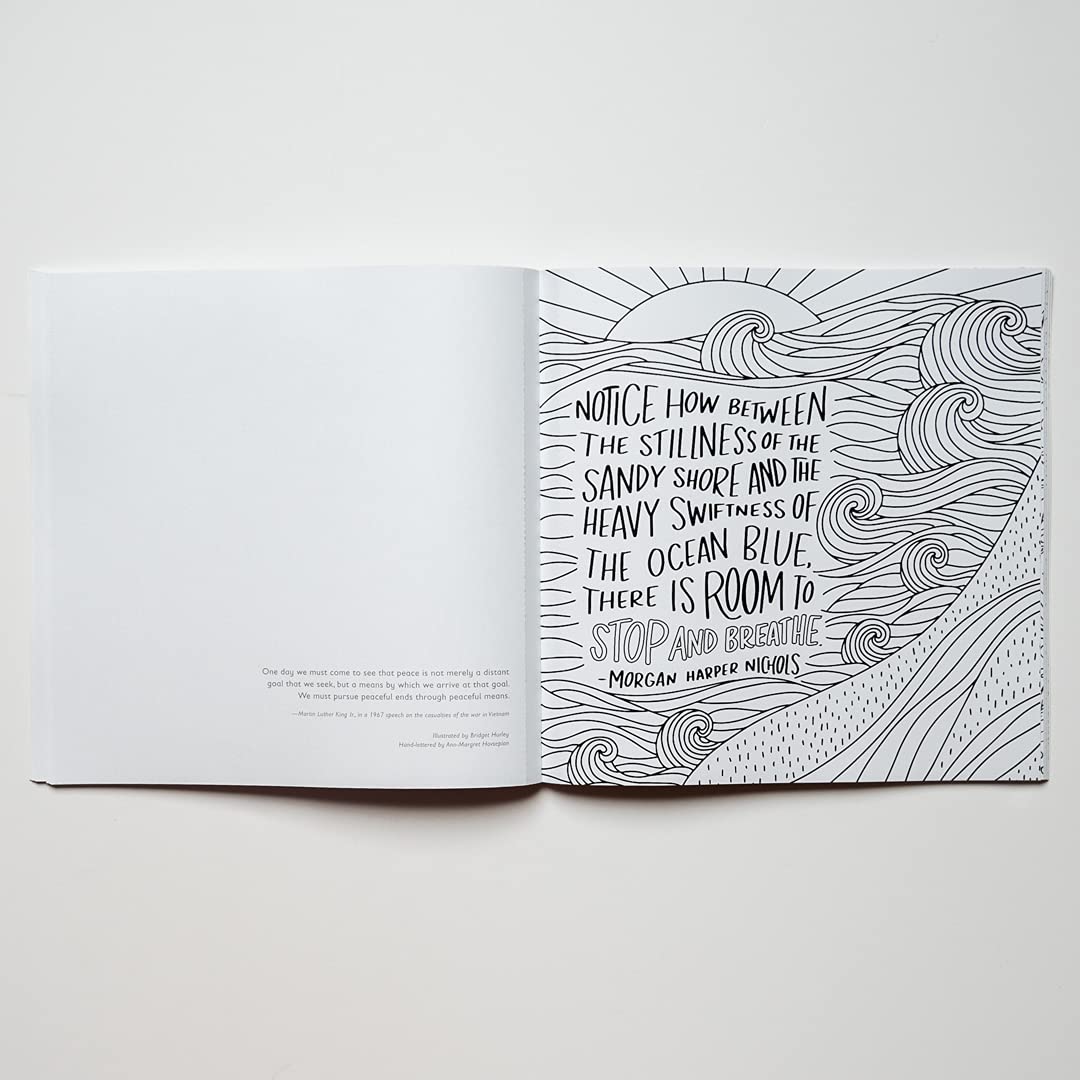 One day we must come to see that peace is not merely a distant
goal that we seek, but a means by which we arrive at that goal.
We must pursue peaceful ends through peaceful means.
—Martin Luther King Jr., in a 1967 speech on the casualties of the war in Vietnam
Illustrated by Bridget Hurley
Hand-lettered by Ano-Margret Hovsepian
NOTICE HOW BETWEEN
THE STILLNESS OF THE
SANDY SHORE AND THE
HEAVY SWIFTNESS OF
THE OCEAN BLUE,
THERE IS ROOM TO
STOP AND BREATHE.
-MORGAN HARPER NICHOLS